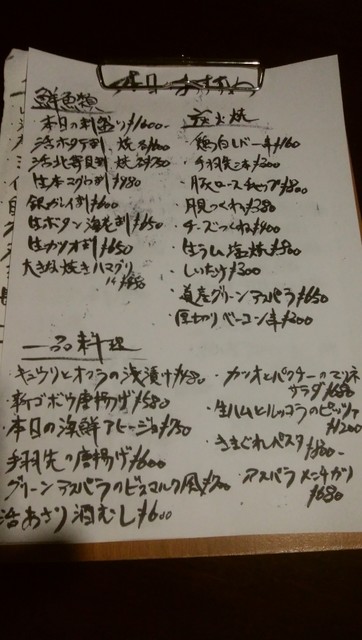 本日のおすすめ
鮮魚類
・本日の刺盛り ¥1600-
・活ホタテ刺、焼 ¥600
・活北寄貝刺、焼 ¥750
・生本マグロ刺 ¥980
・銀ガレイ刺 ¥600
・生ボタン海老刺 ¥650
・生カツオ刺 ¥650
大きな焼きハマグリ
炭火焼
・鶏白レバー串 ¥160
・手羽先二本 ¥300
・豚ロースチャップ ¥800
・月見つくね ¥380
・チーズつくね ¥400
・生ラム塩焼 ¥800
・しいたけ ¥300
・道産グリーンアスパラ ¥650
・厚切りベーコン串 ¥300
一品料理
・キュウリとオクラの浅漬け ¥480
・新ゴボウ唐揚げ ¥580
・本日の海鮮アヒージョ ¥750
手羽先の唐揚げ ¥600
グリーンアスパラのビスマルク風 ¥700
活あさり酒むし ¥600
・カツオとパクチーのマリネ
サラダ ¥680
・生ハムとルッコラのピッツァ
¥1200
・きまぐれパスタ
¥800-
・アスパラメンチカツ
¥680